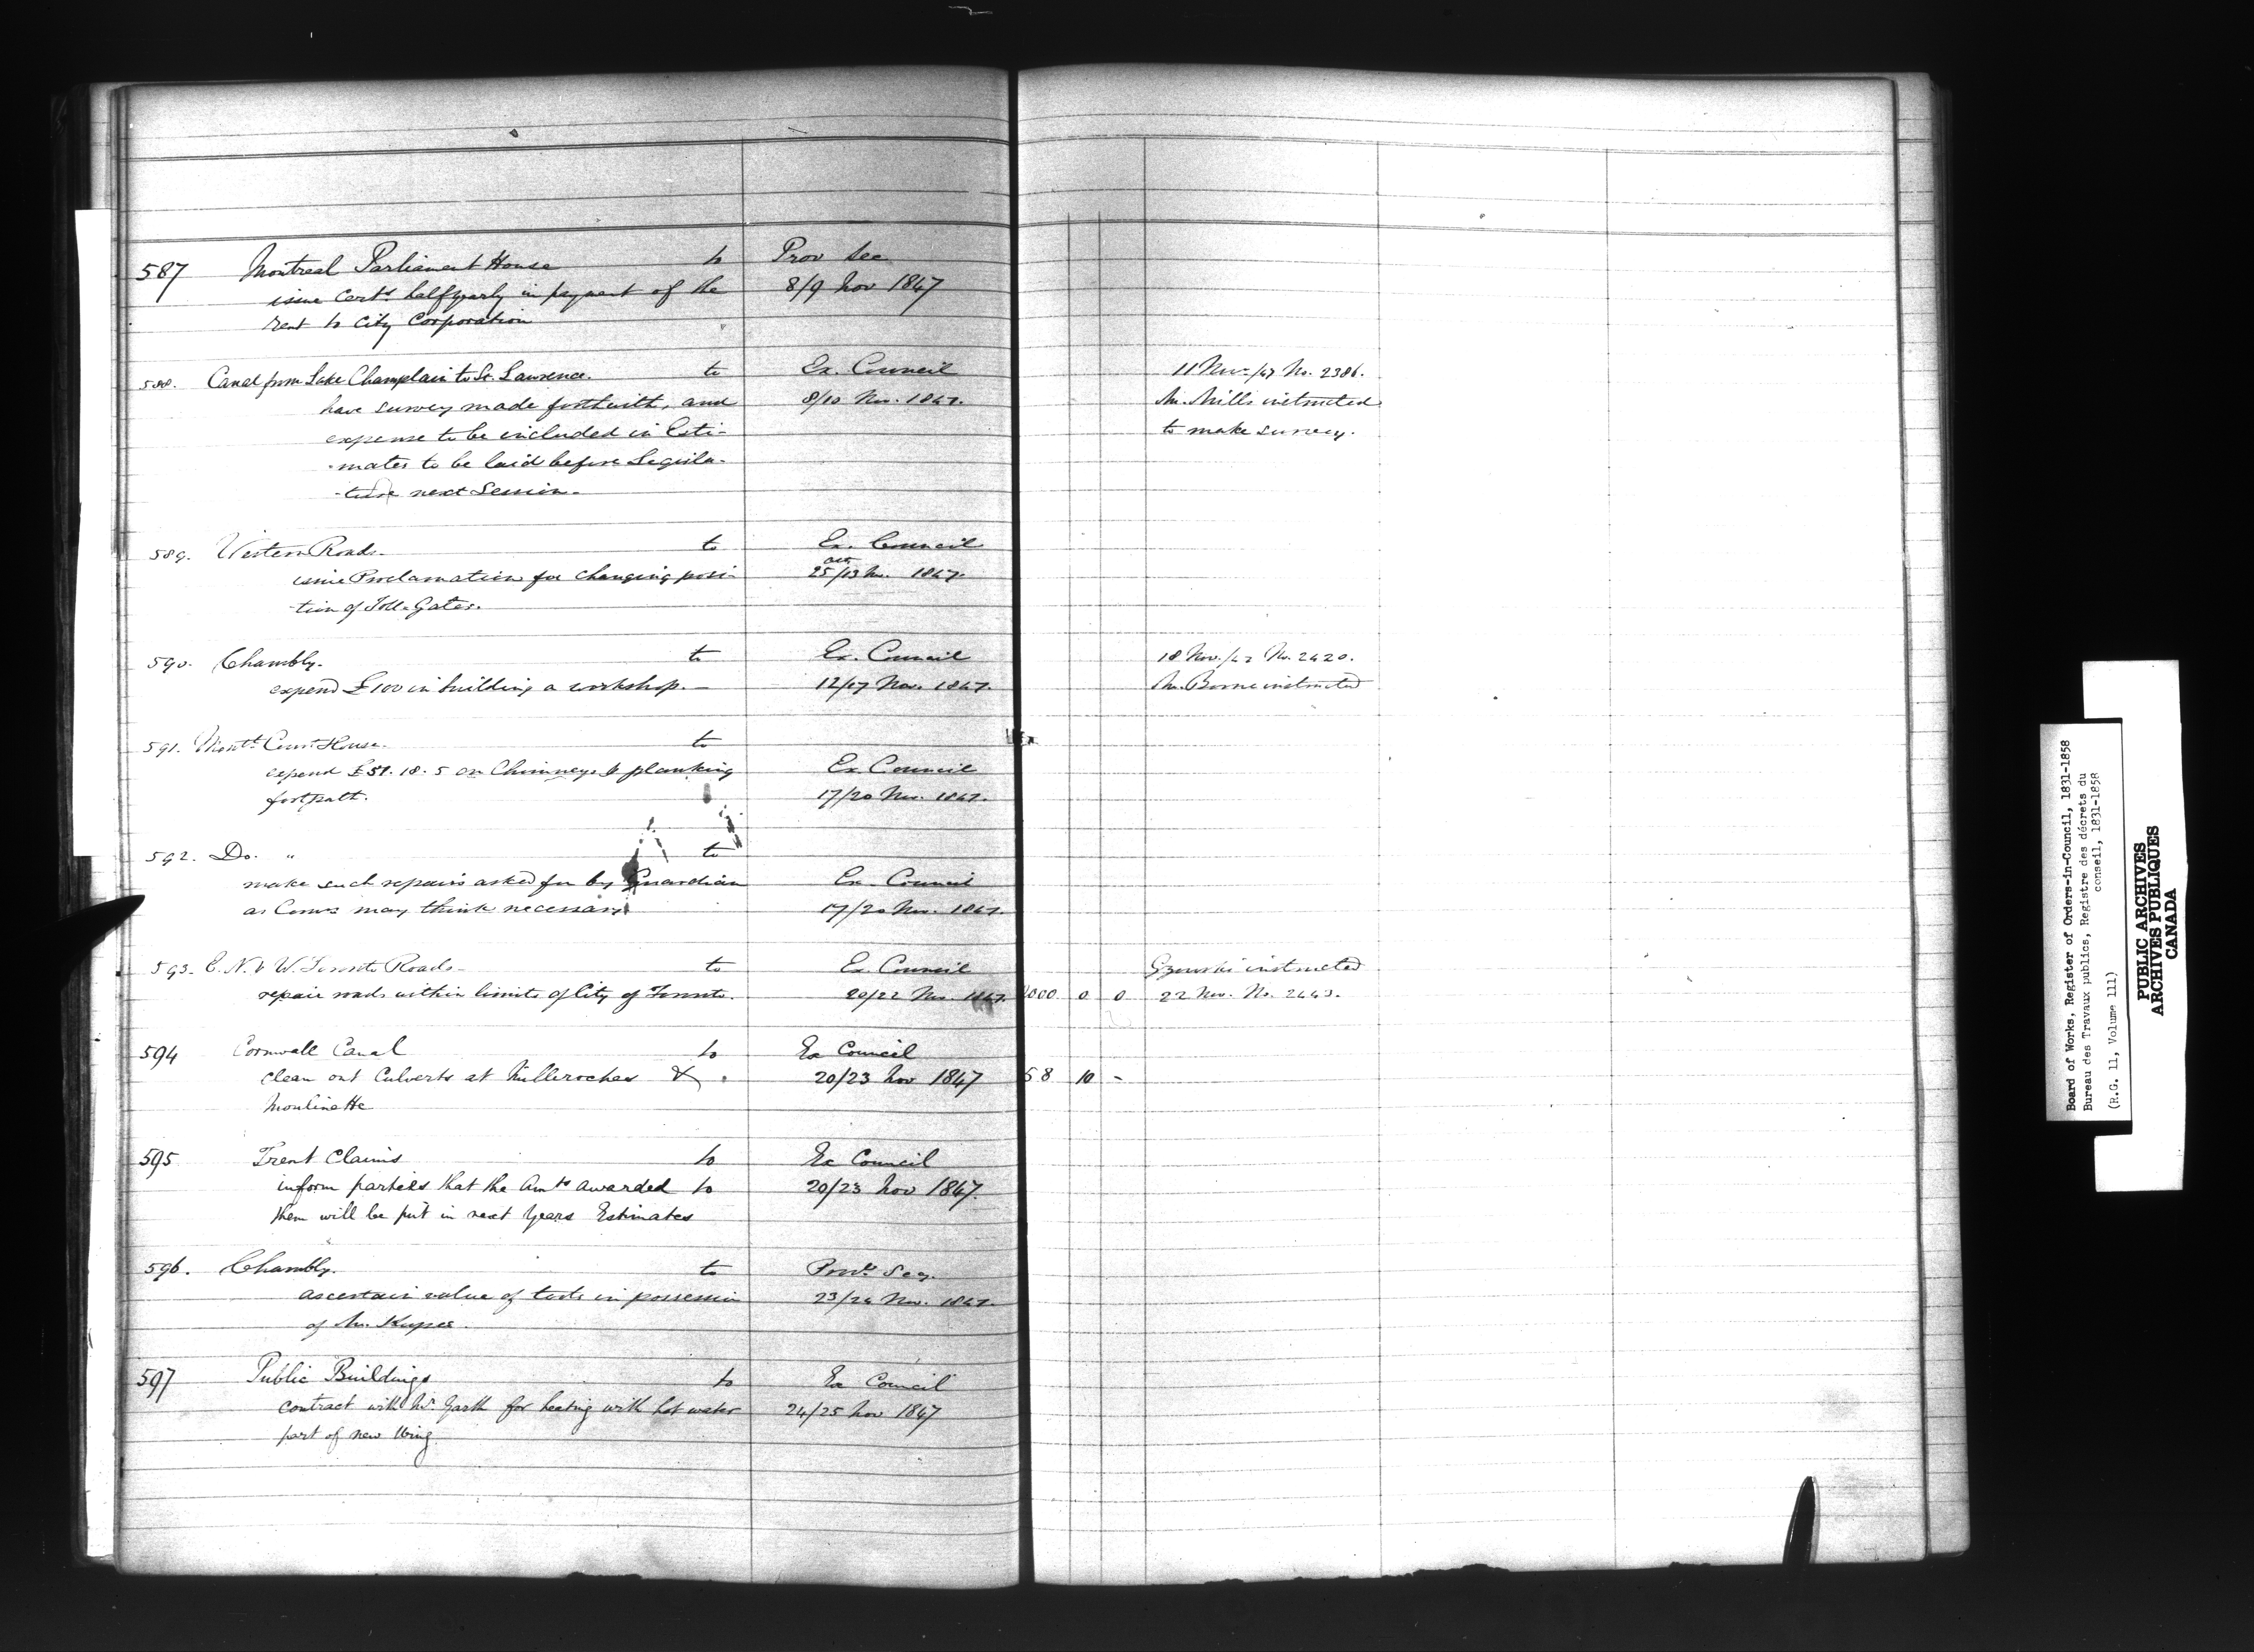 587 Montreal Parliament House to Prov Sec
issue Certs halfyearly in payment of the 8/9 Nov 1847
rent to City Corporation
588. Canal from Lake Champlain to St. Lawrence. to Ex. Council 11 Nov. /47 No. 2386.
have survey made forthwith, and 8/10 Nov. 1847. Mr. Mills instructed
expense to be included in Esti- to make survey.
-mates to be laid before Legisla-
-ture next Session.
589. Western Roads. to Ex. Council
issue Proclamation for changing posi- Oct 25/13 Nov. 1847.
-tion of Toll-Gates.
590. Chambly. to Ex. Council 18 Nov. /47 No. 2420.
expend £100 in building a workshop. 12/17 Nov. 1847. Mr. instructed
591. Montl. Court House. to
expend £51. 18. 5 on Chimneys & planking Ex. Council
footpath. 17/20 Nov. 1847.
592. Do. " to
make such repairs asked for by Guardian Ex. Council
as Comrs may think necessary 17/20 Nov. 1847.
593. E. N. & W. Toronto Roads. to Ex. Council Gzowski instructed
repair roads within limits of City of Toronto. 20/22 Nov 1847. 000 0 0 22 Nov. No. 2443.
594 Cornwall Canal to Ex Council
clean out Culverts at Milleroches & 20/23 Nov 1847 58 10 -
Moulinette
595 Trent Claims to Ex Council
inform parties that the Amts awarded to 20/23 Nov 1847.
them will be put in next Years Estimates
596. Chambly. to Provl. Secy.
ascertain value of tools in possession 23/24 Nov. 1847.
of Mr.
597 Public Buildings to Ex Council
contract with Mr Garth for heating with hot water 24/25 Nov 1847
part of new Wing
Board of Works, Register of Orders-in-Council, 1831-1858
Bureau des Travaux publics, Registre des décrets du
conseil, 1831-1858
(R.G. 11, Volume 111)
PUBLIC ARCHIVES
ARCHIVES PUBLIQUES
CANADA